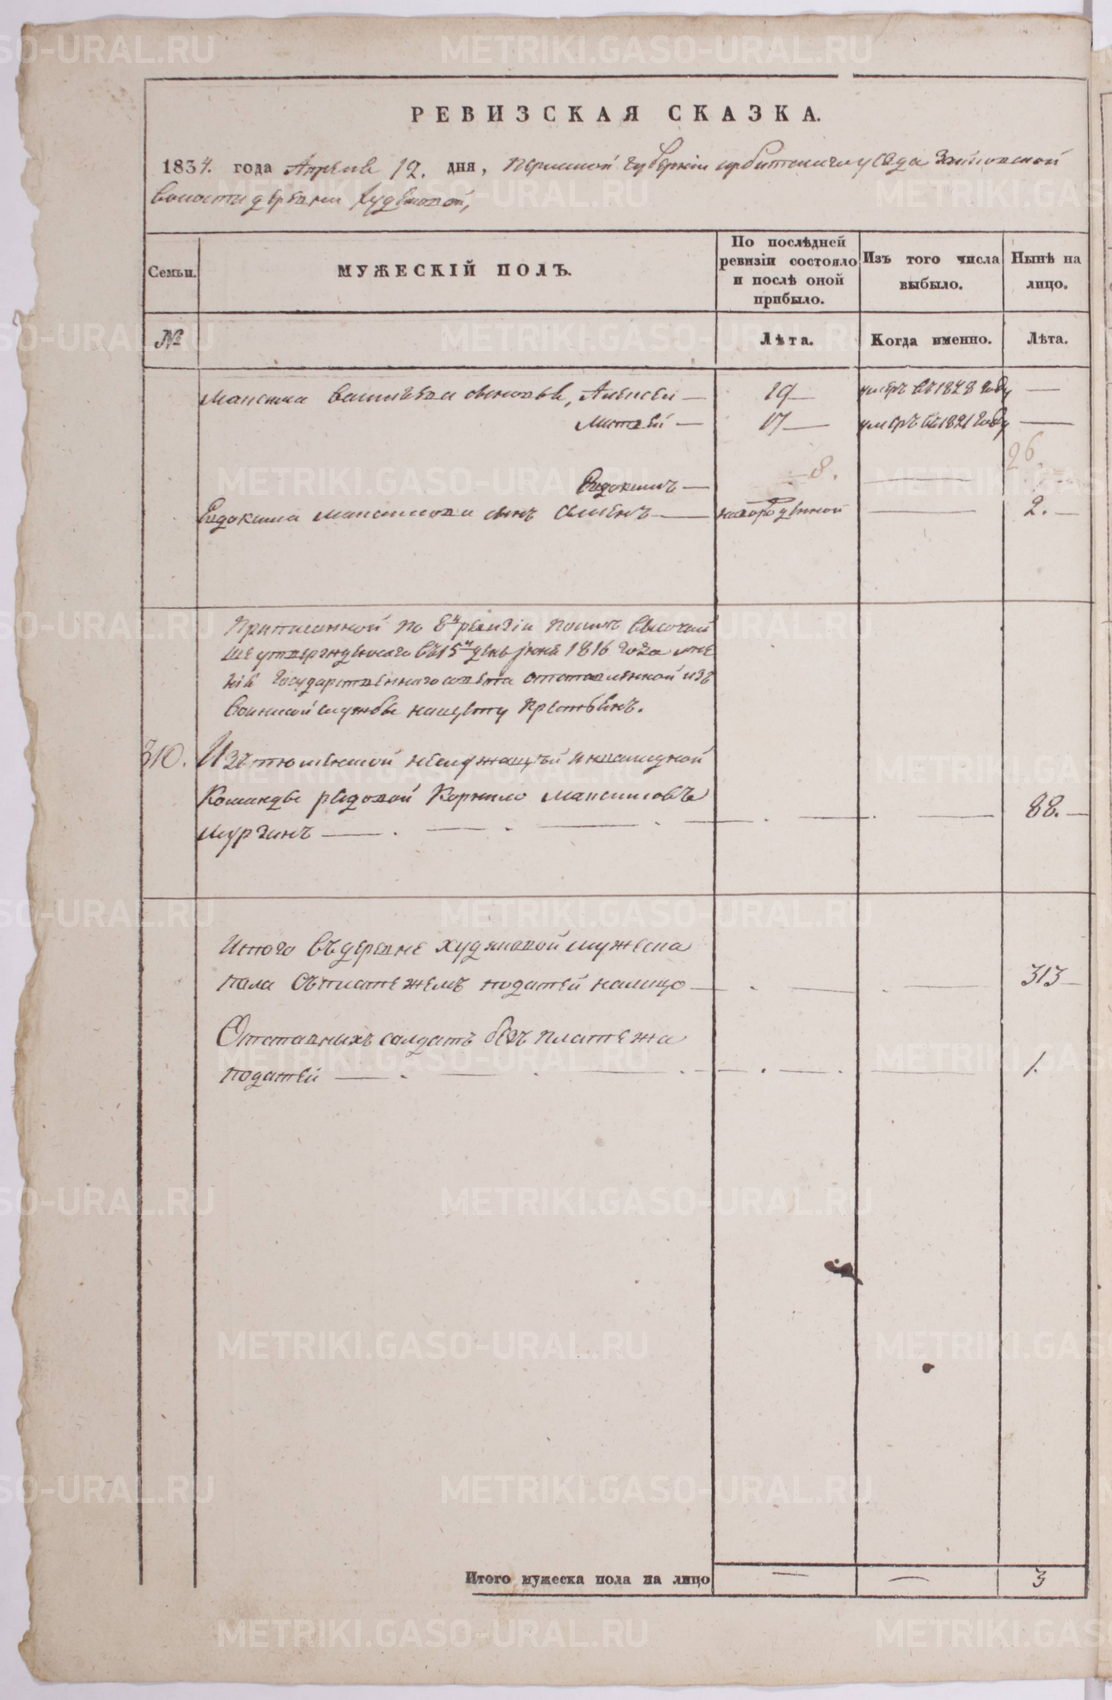 РЕВИЗСКАЯ СКАЗКА.
1834. года Апреля 12. дня, Пермской губернiи ирбитскаго уезда
волости деревни Худяковой,
Семьи.
МУЖЕСКIЙ ПОЛЪ.
По послѣдней ревизiи состояло и послѣ оной прибыло.
Изъ того числа выбыло.
Нынѣ на лицо.
№
Лѣта.
Когда именно.
Лѣта.
Максима васильева сыновья, Алексей — 19 — умеръ въ 1828 году —
Матвей — 17 — умеръ въ 1821 году —
26.
Евдокимъ — 8. —
Евдокима максимова сынъ Семенъ — новорожденной — 2. —
Приписанной по 8й ревизiи посилѣ высочай
ше утвержденнаго въ 15й день июня 1816 года мне
нiя государственнаго совета отставленной изъ
воинской службы нащету крестьянъ.
310. Изъ тюменской неслужащей инвалидной
Команды рядовой Корнило максимовъ
мурзинъ — 88. —
Итого въ деревне худяковой мужеска
пола съ платежемъ податей налицо — 313 —
Отставныхъ солдатъ безъ платежа
податей — 1.
Итого мужеска пола на лицо — — 3
METRIKI.GASO-URAL.RU